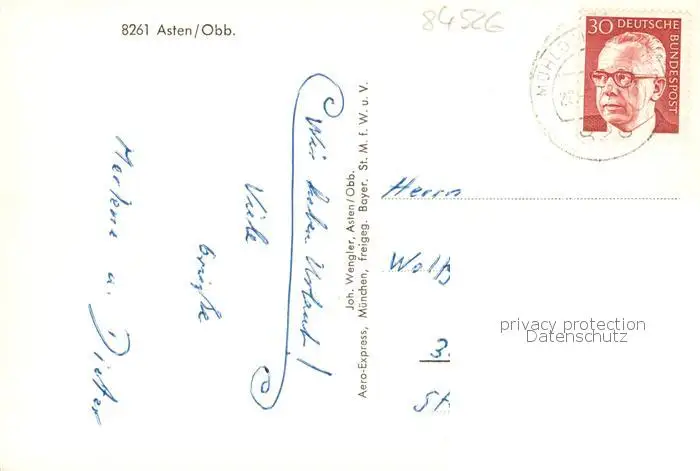 8261 Asten/Obb.
84526
30 DEUTSCHE BUNDESPOST
MÜHLD
Wir haben Urlaub!
Viele
Grüße
Marlene u. Dieter
Joh. Wengler, Asten/Obb.
Aero-Express, München, freigeg. Bayer. St. M. f. W. u. V.
Herrn
Wolf
3.
St
privacy protection
Datenschutz